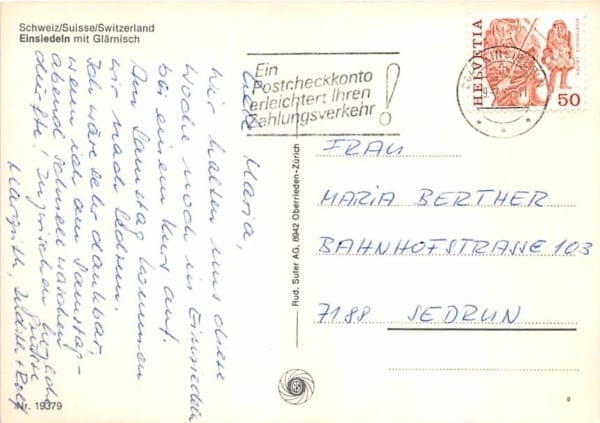 Schweiz/Suisse/Switzerland
Einsiedeln mit Glärnisch
Liebe Maria,
Wir halten uns diese
Woche noch in Einsiedeln
bei einem Kurs auf.
Am Samstag kommen
wir nach Sedrun.
Ich wäre sehr dankbar,
wenn ich am Samstag-
abend schnell waschen
dürfte! Inzwischen herzliche
Grüsse
Margrith, Judith + Rolf
Nr. 19379
Rud. Suter AG, 8942 Oberrieden-Zürich
RS
Ein
Postcheckkonto
erleichtert Ihren
Zahlungsverkehr!
EINSIEDELN
HELVETIA
50
FRAU
MARIA BERTHER
BAHNHOFSTRASSE 103
7188 SEDRUN
9